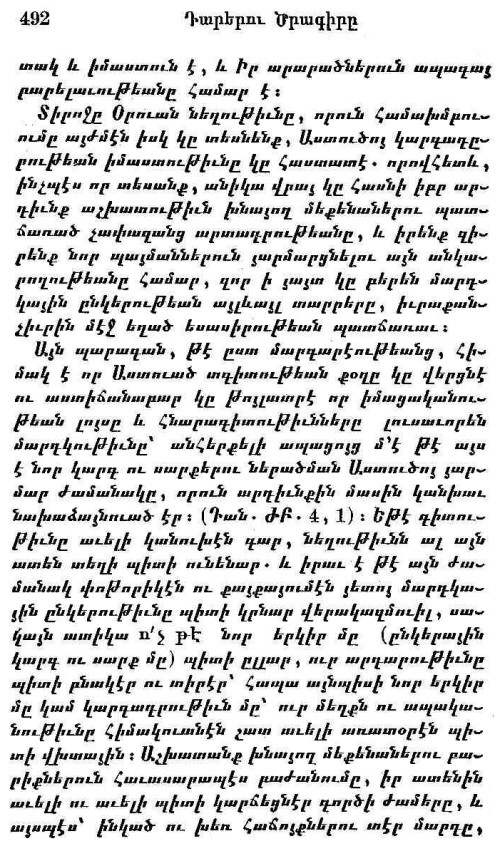 492 Դարերու Ծրագիրը
տակ և իմաստուն է, և Իր արարածներուն ապագայ
բարելաւութեանը Համար է։
Տիրոջը Օրուան նեղութիւնը, որուն Համախմբու-
ումը այժմէն իսկ կը տեսնենք, Աստուծոյ կարգադը-
րութեան իմաստութիւնը կը Հաստատէ. որովՀետև,
ինչպէս որ տեսանք, անիկա վրայ կը Հասնի իբր ար-
դիւնք աշխատութիւն խնայող մեքենաներու պատ-
ճառած չափազանց արտադրութեանը, և իրենք զի-
րենք նոր պայմաններուն յարմարցնելու այն անկա-
րողութեանը Համար, զոր ի յայտ կը բերեն մարդ-
կային ընկերութեան այլևայլ տարրերը, իւրաքան-
չիւրին մէջ եղած եսասիրութեան պատճառաւ։
Այն պարագան, թէ ըստ մարգարէութեանց, Հի-
մակ է որ Աստուած տգիտութեան քօղը կը վերցնէ
ու աստիճանաբար կը թոյլատրէ որ իմացականու-
թեան լոյսը և Հնարագիտութիւնները լուսաւորեն
մարդկութիւնը՝ անՀերքելի ապացոյց մ՚է թէ այս
է նոր կարգ ու սարքերու ներածման Աստուծոյ յար-
մար ժամանակը, որուն արդիւնքին մասին կանխաւ
նախաձայնուած էր։ (Դան. ԺԲ. 4, 1)։ Եթէ գիտու-
թիւնը աւելի կանուխէն գար, նեղութիւնն ալ այն
ատեն տեղի պիտի ունենար. և իրաւ է թէ այն ժա-
մանակ փոթորիկէն ու քայքայումէն յետոյ մարդկա-
յին ընկերութիւնը պիտի կրնար վերակազմուիլ, սա-
կայն ատիկա ո՛չ թէ նոր երկիր մը (ընկերային
կարգ ու սարք մը) պիտի ըլլար, ուր արդարութիւնը
պիտի բնակէր ու տիրէր՝ Հապա այնպիսի նոր երկիր
մը կամ կարգադրութիւն մը՝ ուր մեղքն ու ապակա-
նութիւնը Հիմակուանէն շատ աւելի առատօրէն պի-
տի վխտային։ Աշխատանք խնայող մեքենաներու բա-
րիքներուն Հաւասարապէս բաժանումը, իր ատենին
աւելի ու աւելի պիտի կարճեցնէր գործի ժամերը, և
այսպէս՝ ինկած ու խեռ Հաճոյքներու տէր մարդը,